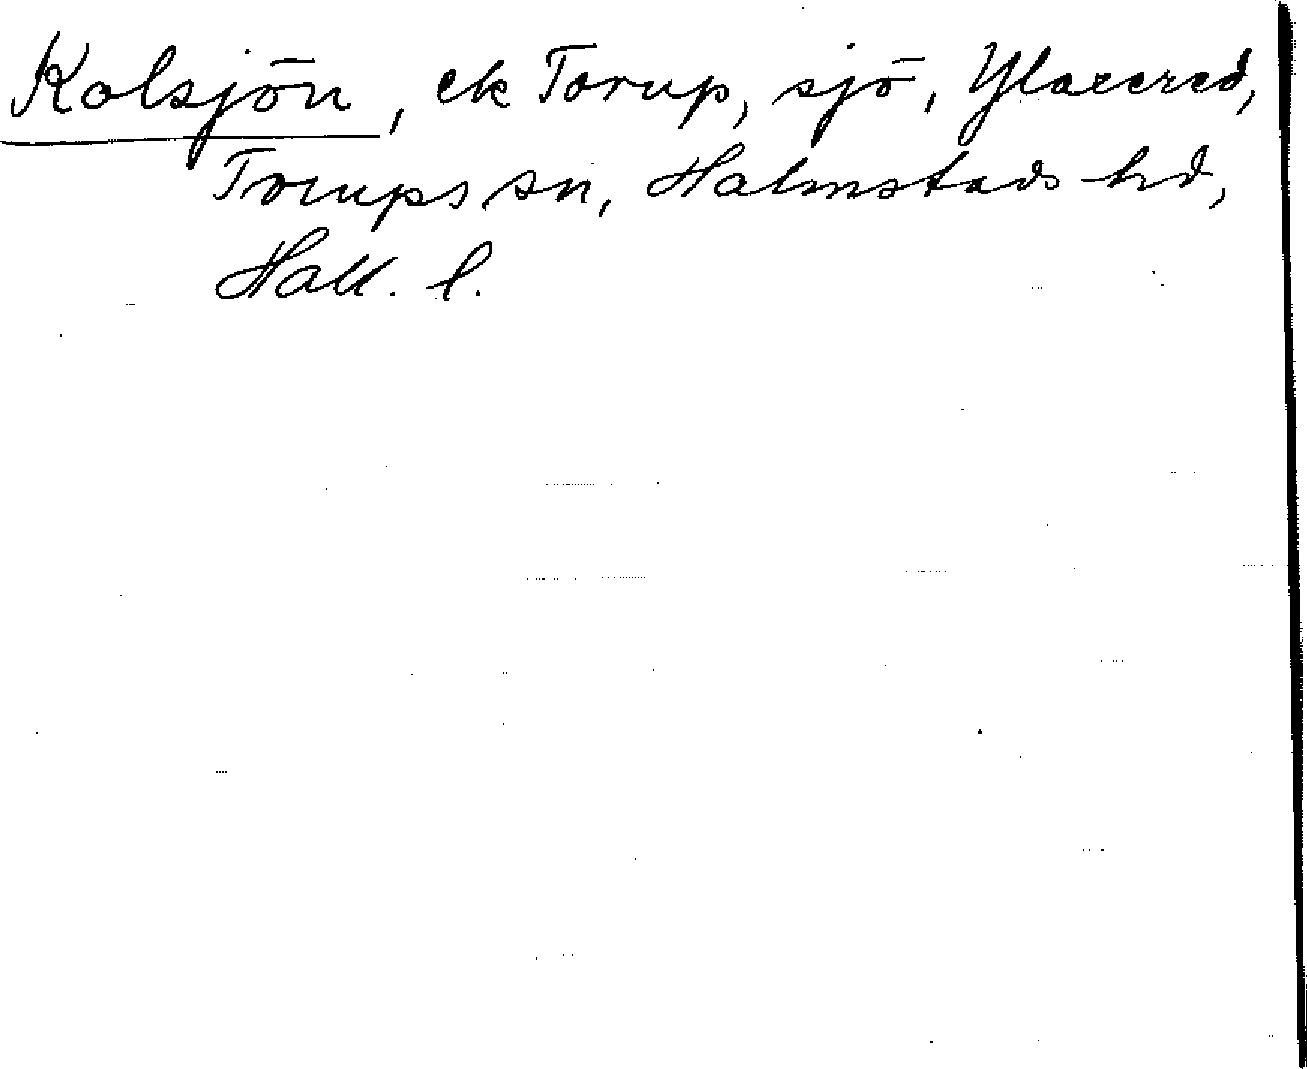 Kolsjön, ek Torup, sjö, Ylaered,
Torups sn, Halmstads hd,
Hall. l.